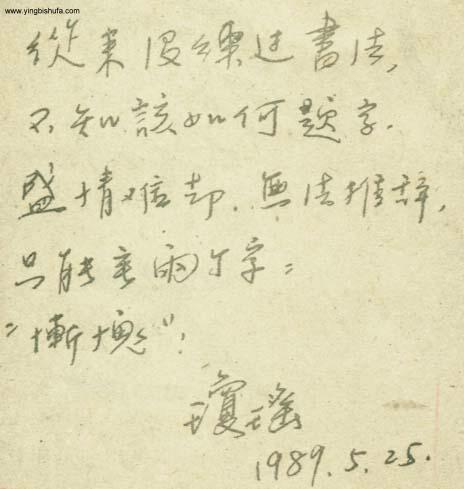 www.yingbishufa.com
從来没練过書法,
不知該如何題字.
盛情难却.無法推辞,
只能寫兩个字:
"慚愧".
瓊瑤
1989.5.25.